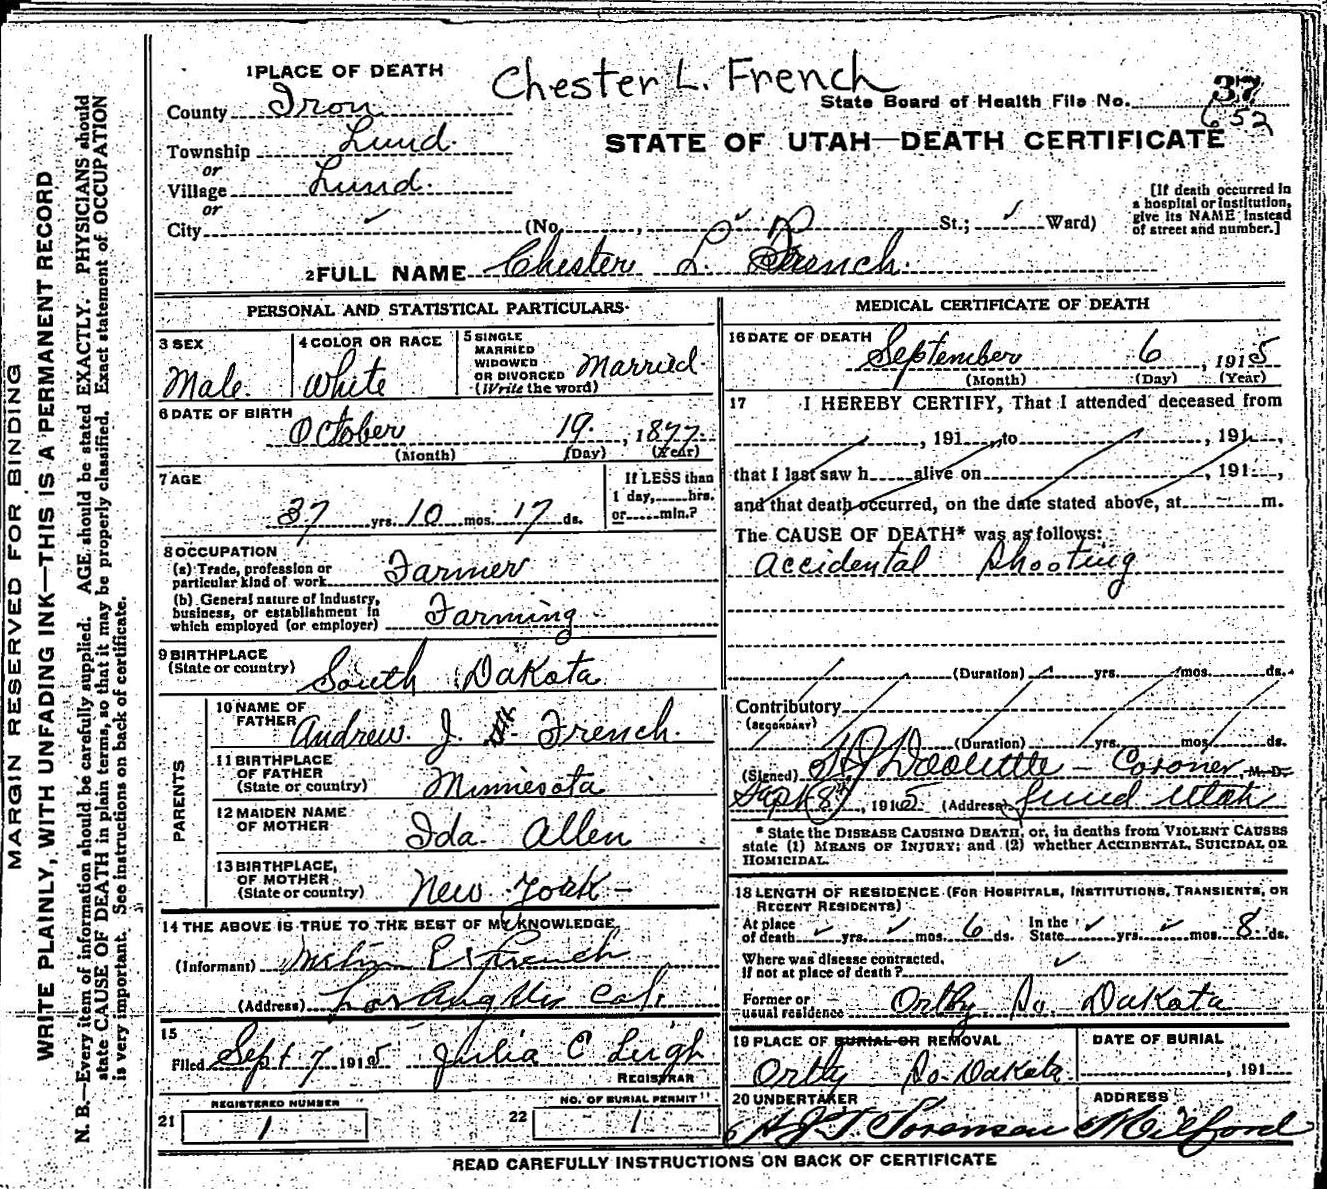 MARGIN RESERVED FOR BINDING
WRITE PLAINLY, WITH UNFADING INK—THIS IS A PERMANENT RECORD
N. B.—Every item of information should be carefully supplied. AGE should be stated EXACTLY. PHYSICIANS should
state CAUSE OF DEATH in plain terms, so that it may be properly classified. Exact statement of OCCUPATION
is very important. See instructions on back of certificate.
1 PLACE OF DEATH
Chester L. French
County Iron
State Board of Health File No. 37
652
Township Lund.
or
STATE OF UTAH—DEATH CERTIFICATE
Village Lund.
or
City (No. St.; Ward)
[If death occurred in
a hospital or institution,
give its NAME instead
of street and number.]
2 FULL NAME Chester L. French.
PERSONAL AND STATISTICAL PARTICULARS
3 SEX Male.
4 COLOR OR RACE White
5 SINGLE
MARRIED
WIDOWED
OR DIVORCED
(Write the word) Married.
6 DATE OF BIRTH
October 19. , 1877.
(Month) (Day) (Year)
7 AGE
37 yrs. 10 mos. 17 ds.
If LESS than
1 day, hrs.
or min.?
8 OCCUPATION
(a) Trade, profession or
particular kind of work Farmer
(b) General nature of industry,
business, or establishment in
which employed (or employer) Farming
9 BIRTHPLACE
(State or country) South Dakota
PARENTS
10 NAME OF
FATHER Andrew. J. French.
11 BIRTHPLACE
OF FATHER
(State or country) Minnesota
12 MAIDEN NAME
OF MOTHER Ida Allen
13 BIRTHPLACE
OF MOTHER
(State or country) New York
14 THE ABOVE IS TRUE TO THE BEST OF MY KNOWLEDGE
(Informant) E French
(Address) Los Angeles Cal.
15
Filed Sept 7 1915 Julia C Leigh
REGISTRAR
21 REGISTERED NUMBER
1
22 NO. OF BURIAL PERMIT
1
MEDICAL CERTIFICATE OF DEATH
16 DATE OF DEATH
September 6 , 1915
(Month) (Day) (Year)
17 I HEREBY CERTIFY, That I attended deceased from
, 191 , to , 191 ,
that I last saw h alive on , 191 ,
and that death occurred, on the date stated above, at m.
The CAUSE OF DEATH* was as follows:
Accidental Shooting
(Duration) yrs. mos. ds.
Contributory
(SECONDARY)
(Duration) yrs. mos. ds.
(Signed) Doolittle — Coroner, M. D.
Sept 8th, 1915 (Address) Lund Utah
* State the DISEASE CAUSING DEATH, or, in deaths from VIOLENT CAUSES
state (1) MEANS OF INJURY; and (2) whether ACCIDENTAL, SUICIDAL OR
HOMICIDAL.
18 LENGTH OF RESIDENCE (FOR HOSPITALS, INSTITUTIONS, TRANSIENTS, OR
RECENT RESIDENTS)
At place
of death yrs. mos. 6 ds.
In the
State yrs. mos. 8. ds.
Where was disease contracted,
If not at place of death?
Former or
usual residence Ortley So. Dakota
19 PLACE OF BURIAL OR REMOVAL
Ortley So. Dakota.
DATE OF BURIAL
, 191
20 UNDERTAKER
Sorensen
ADDRESS
Milford
READ CAREFULLY INSTRUCTIONS ON BACK OF CERTIFICATE